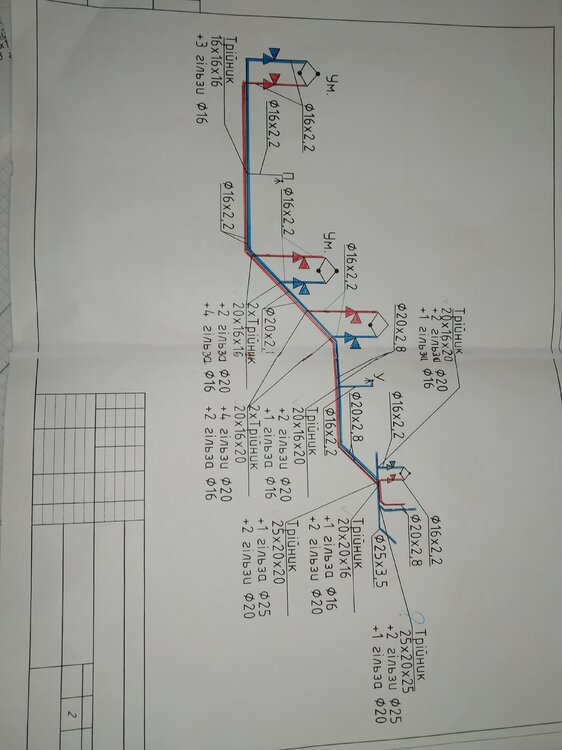 Трійник
20x16x20
+2 гільза Ф20
+1 гільза Ф16
Ф16x2,2
Трійник
25x20x25
+2 гільзи Ф25
+1 гільза Ф20
Ф20x2,8
Ф20x2,8
Ф16x2,2
У
Ф25x3,5
Ф16x2,2
Ф20x2,8
Трійник
20x20x16
+1 гільза Ф16
+2 гільзи Ф20
Ум.
Ум.
Ф16x2,2
Ф16x2,2
Трійник
20x16x20
+2 гільзи Ф20
+1 гільза Ф16
П
Ф16x2,2
Трійник
25x20x20
+1 гільза Ф25
+2 гільзи Ф20
Ф16x2,2
2xТрійник
20x16x16
+2 гільза Ф20
+4 гільза Ф16
2xТрійник
20x16x20
+4 гільзи Ф20
+2 гільза Ф16
Трійник
16x16x16
+3 гільзи Ф16
Ф16x2,2
2